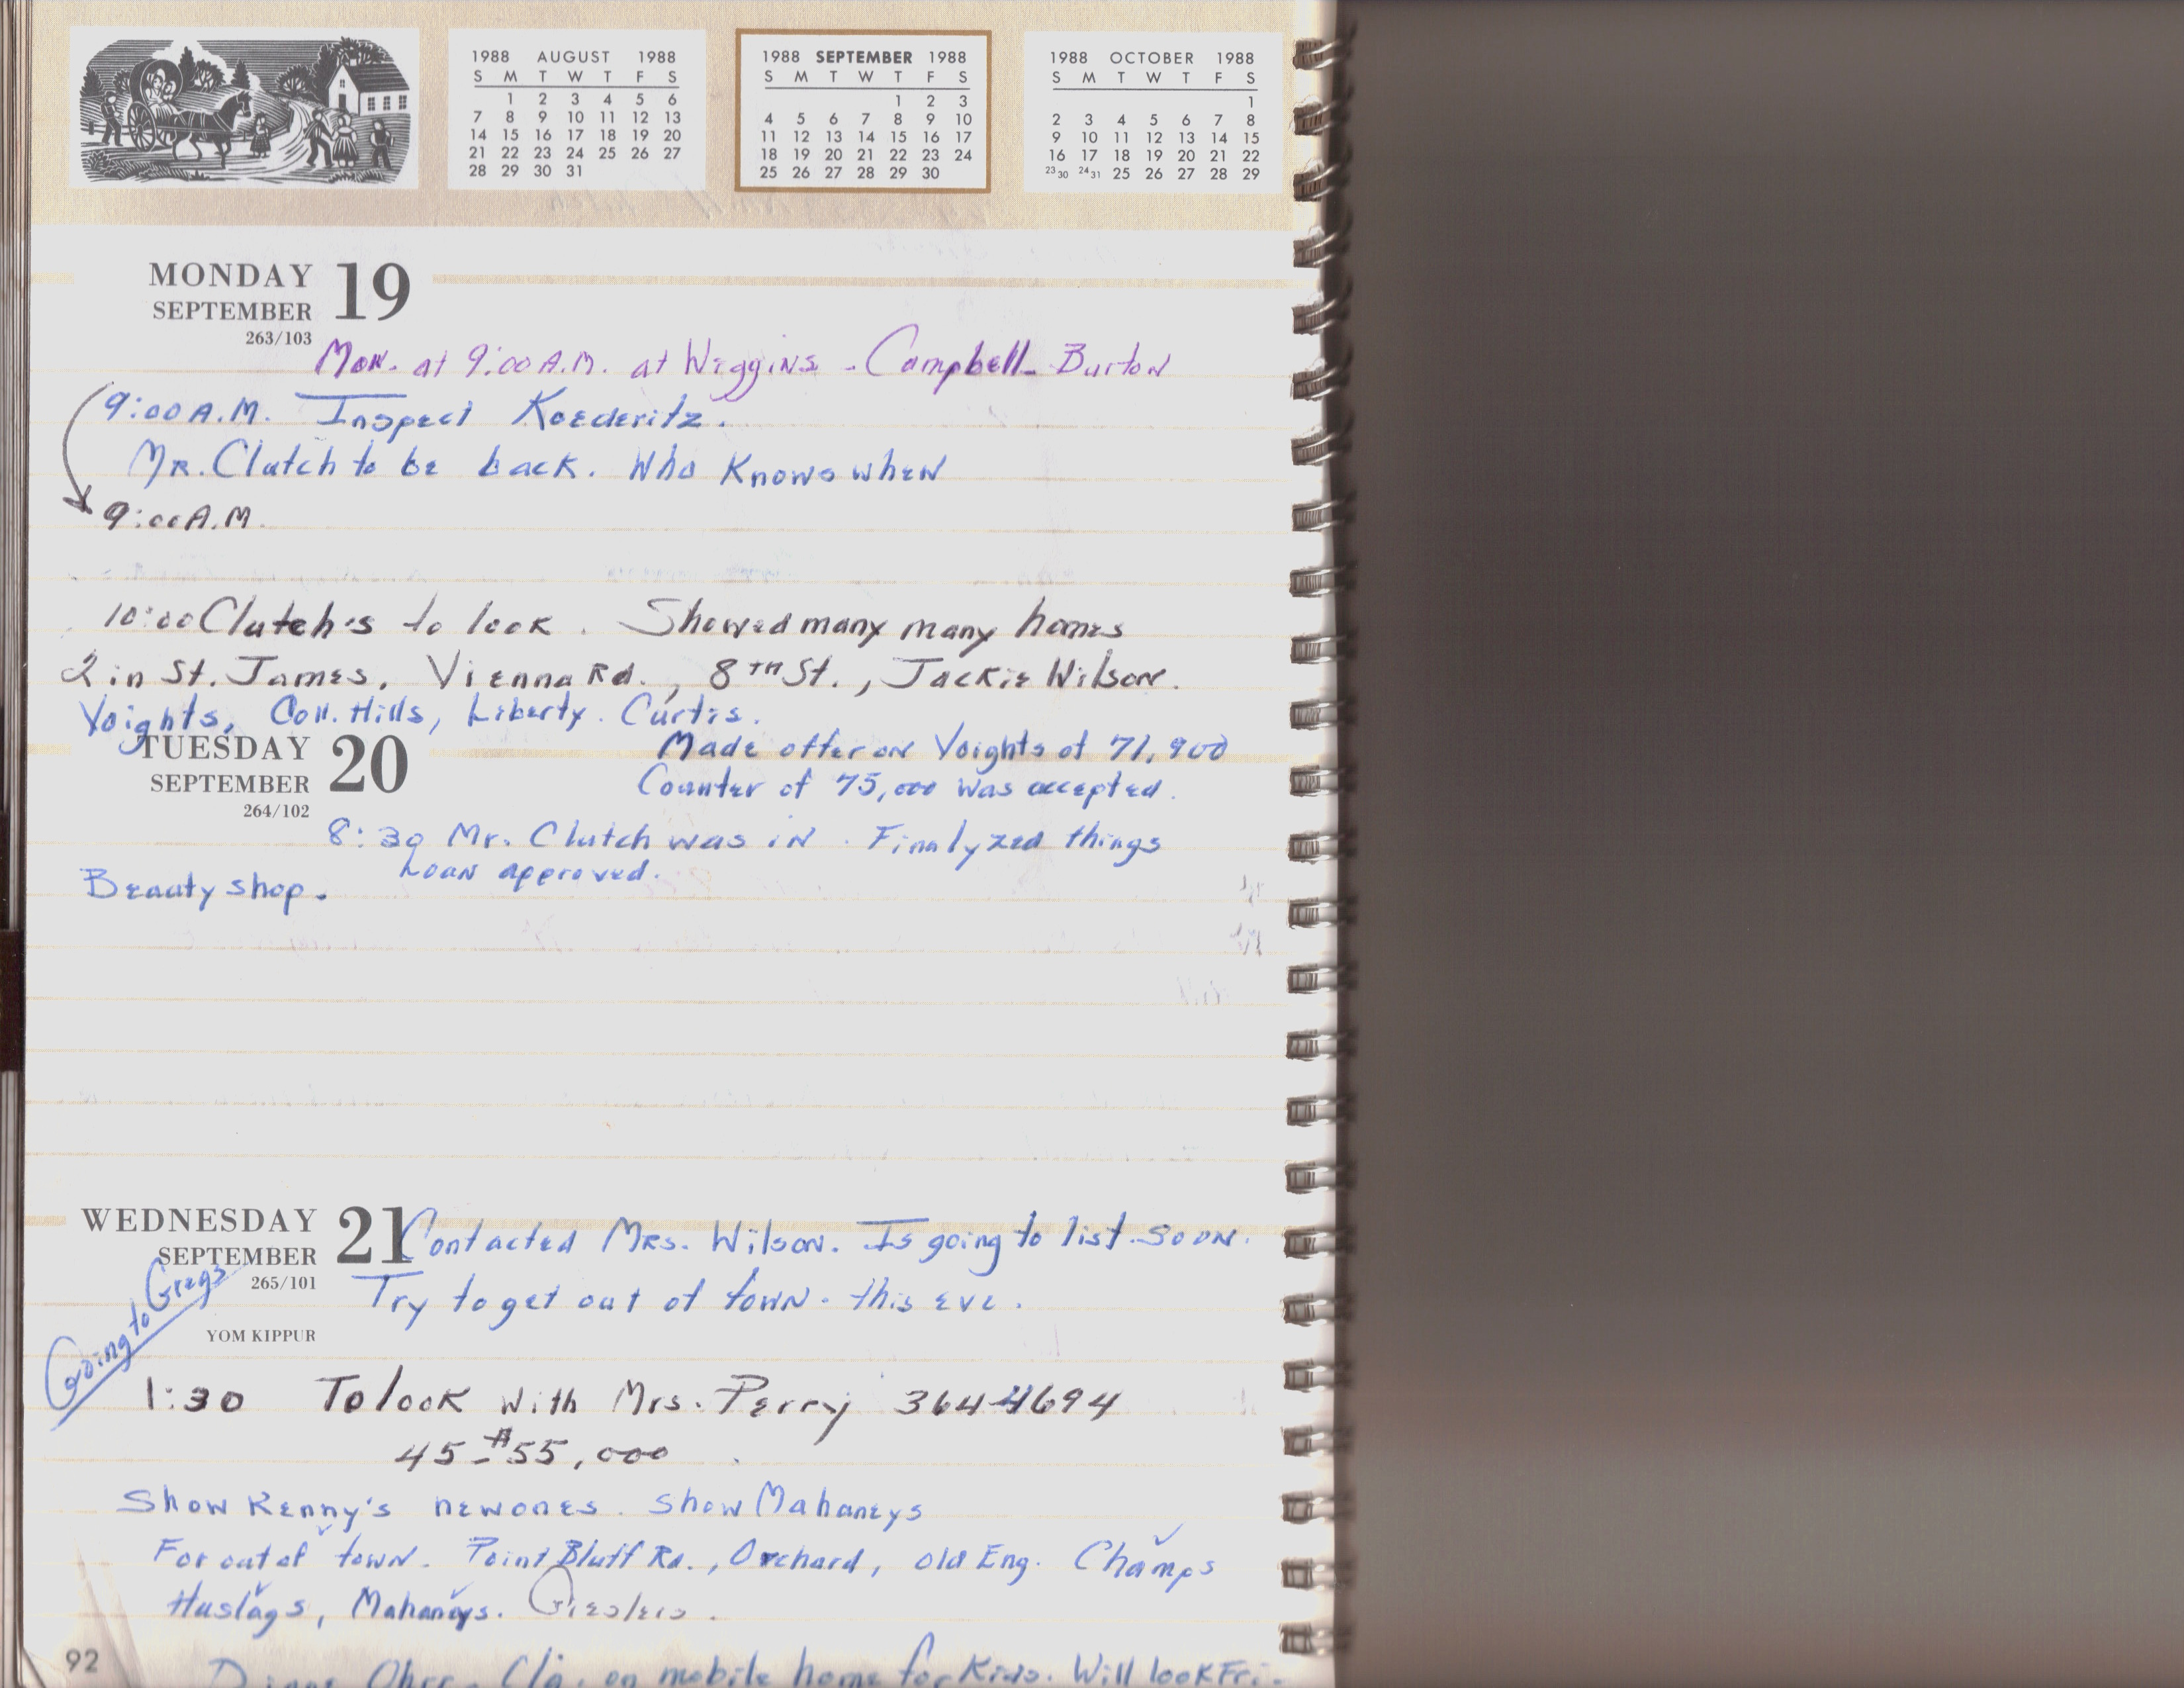 1988 AUGUST 1988
S M T W T F S
1 2 3 4 5 6
7 8 9 10 11 12 13
14 15 16 17 18 19 20
21 22 23 24 25 26 27
28 29 30 31
1988 SEPTEMBER 1988
S M T W T F S
1 2 3
4 5 6 7 8 9 10
11 12 13 14 15 16 17
18 19 20 21 22 23 24
25 26 27 28 29 30
1988 OCTOBER 1988
S M T W T F S
1
2 3 4 5 6 7 8
9 10 11 12 13 14 15
16 17 18 19 20 21 22
23 30 24 31 25 26 27 28 29
MONDAY 19
SEPTEMBER
263/103
Mon. at 9:00 A.M. at Wiggins - Campbell - Burton
9:00 A.M. Inspect Koederitz.
Mr. Clutch to be back. Who Knows when
9:00 A.M.
10:00 Clutch's to look. Showed many many homes
2 in St. James, Vienna Rd., 8TH St., Jackie Wilson.
Voights, Coll. Hills, Liberty. Curtis.
TUESDAY 20
SEPTEMBER
264/102
Made offer on Voights of 71,900
Counter of 75,000 was accepted.
8:30 Mr. Clutch was in. Finalyzed things
Loan approved.
Beauty shop.
WEDNESDAY 21
SEPTEMBER
265/101
YOM KIPPUR
Contacted Mrs. Wilson. Is going to list soon.
Try to get out of town - this eve.
Going to Gregs
1:30 To look with Mrs. Perry 364-4694
45-$55,000
Show Kenny's new ones. Show Mahaneys
For out of town - Point Bluff Rd., Orchard, old Eng. Champs
Huslags, Mahaneys.
92
on mobile home for Kids. Will look Fri.